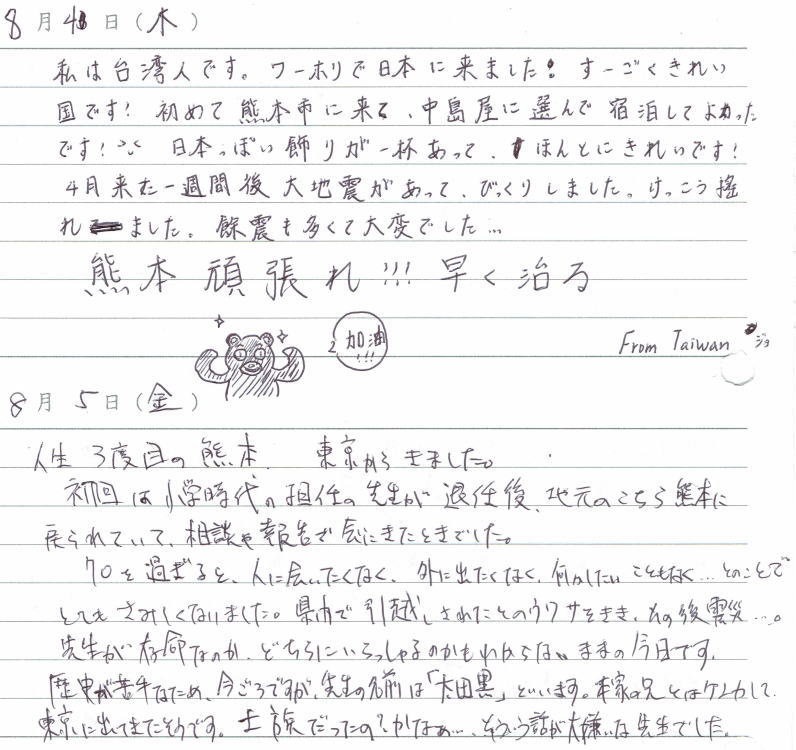 8月4日(木)
私は台湾人です。ワーホリで日本に来ました！すーごくきれい
国です！初めて熊本市に来て、中島屋に選んで宿泊してよかった
です！日本っぽい飾りが一杯あって、ほんとにきれいです！
4月来た一週間後大地震があって、びっくりしました。けっこう搖
れました。餘震も多くて大変でした…
熊本頑張れ!!!早く治る
加油!!!
From Taiwan ジョ
8月5日(金)
人生3度目の熊本. 東京からきました。
初回は小学時代の担任の先生が退任後、地元のこちら熊本に
戻られていて、相談や報告で会にきたときでした。
70を過ぎると、人に会いたくなく、外に出たくなく、何かしたいこともなく…とのことで
とてもさみしくないました。県内で引越しされたとのウワサをきき、その後震災…。
先生が存命なのか、どちらにいらっしゃるのかもわからないままの今日です。
歴史が苦手なため、今ごろですが、先生の名前は「太田黒」といいます。本家の兄とはケンカして
東京に出てきたそうです。士族だったの？かなぁ…、そういう話が大嫌いな先生でした。